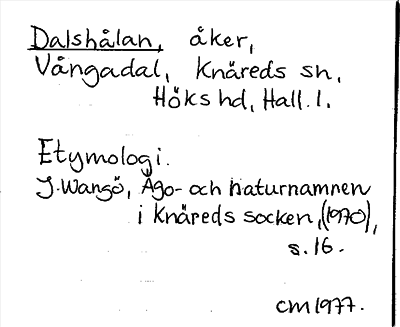 Dalshålan, åker,
Vångadal, Knäreds sn,
Höks hd, Hall. l.
Etymologi.
J. Wangö, Ägo- och naturnamnen
i Knäreds socken, (1970),
s. 16.
CM 1977.